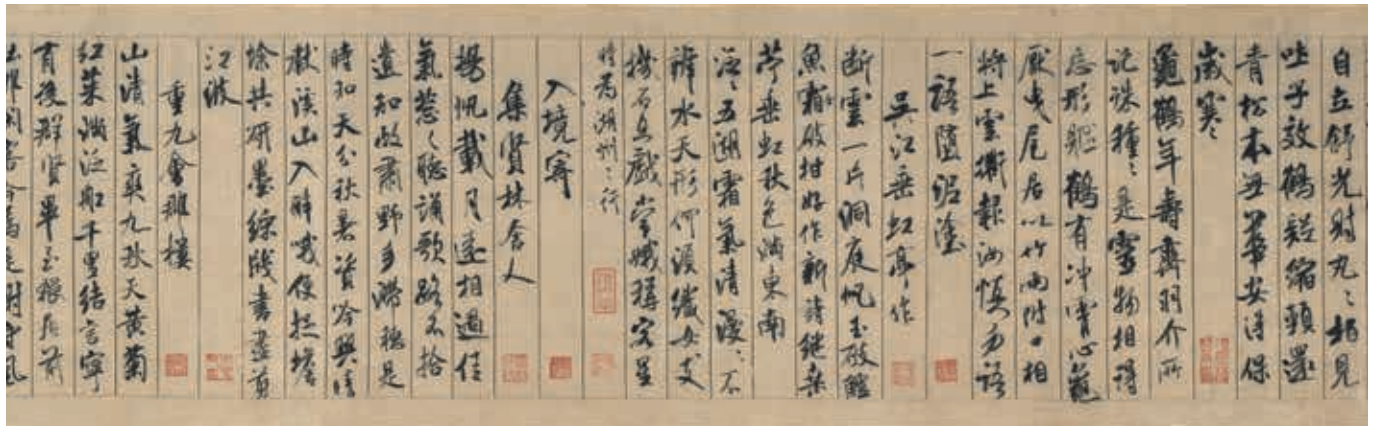 自立舒光射丸〻栢見
吐子效鶴疑縮頸還
青松本無華安得保
歲寒
龜鶴年壽齊羽介所
託殊種〻是靈物相得
忘形軀鶴有沖霄心龜
厭曳尾居以竹兩附口相
將上雲衢報汝慎勿語
一語墮泥塗
吳江垂虹亭作
斷雲一片洞庭帆玉破鱸
魚霜破柑好作新詩繼桑
苧垂虹秋色滿東南
泛〻五湖霜氣清漫〻不
辨水天形何須織女支
機石且戲常娥稱客星
時為湖州之行
入境寄
集賢林舍人
揚帆載月遠相過佳
氣蔥〻聽誦歌路不拾
遺知政肅野多滯穗是
時和天分秋暑資吟興晴
獻溪山入醉哦便捉蟾
蜍共研墨綵牋書盡剪
江波
重九會郡樓
山清氣爽九秋天黃菊
紅茱滿泛船千里結言寧
有後群賢畢至猥居前
杜郎閑客今焉是謝守風